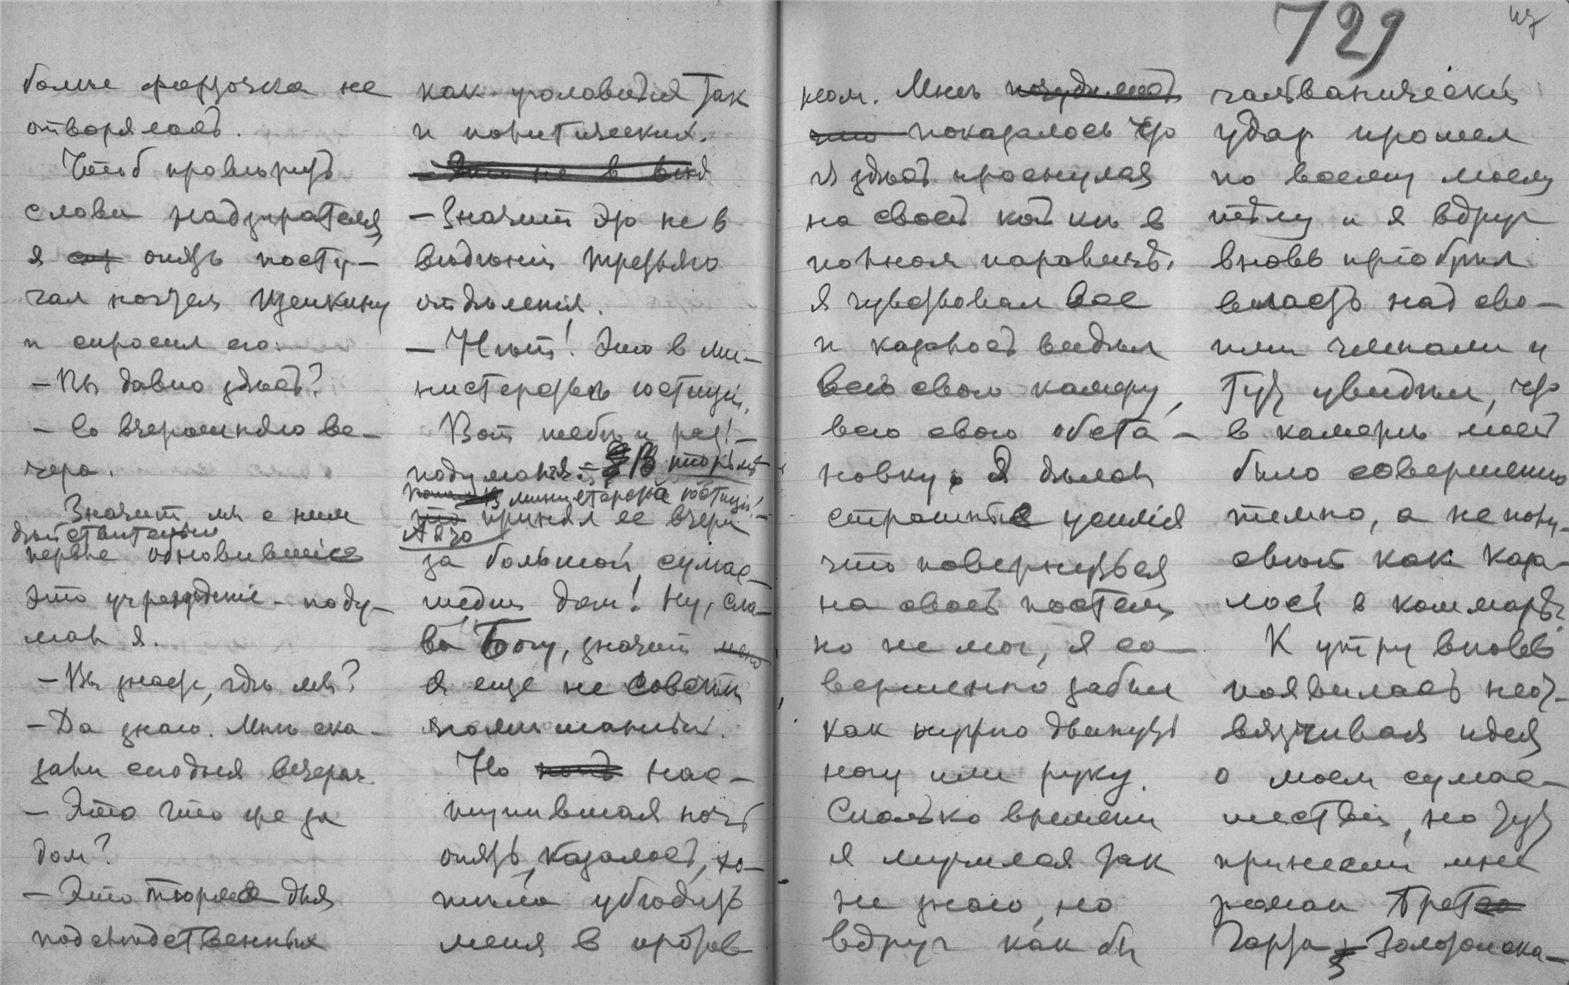 больше форточка не
отворялась.
Чтоб проверить
слова надзирателя,
я опять посту-
чал ночью Щепкину
и спросил его:
— Вы давно здѣсь?
— Со вчерашняго ве-
чера.
Значит мы с ним
дѣйствительно
первые обновившіе
это учрежденіе — поду-
мал я.
— Вы знаете, гдѣ мы?
— Да знаю. Мнѣ ска-
зали сегодня вечером.
— Это что же за
дом?
— Это тюрьма для
подслѣдственных
как уголовных так
и политических.
— Это не в вѣд
— Значит это не в
вѣдѣніи третьяго
отдѣленія.
— Нѣт! Это в ми-
нистерствѣ юстиціи.
Вот тебѣ и раз! —
подумал я: — В тюрьмѣ
министерства юстиціи! —
А я то принял ее вчера
за большой сумас-
шедшій дом! Ну, сла-
ва Богу, значит
я еще не совсѣм
помѣшанный.
Но нас-
тупившая ночь
опять, казалось, хо-
тѣла убѣдить
меня в против
729
ном. Мнѣ почудилось
что показалось что
я здѣсь проснулся
на своей койкѣ в
полном параличѣ.
Я чувствовал все
и казалось видѣл
всю свою камеру,
всю свою обста-
новку. Я дѣлал
страшные усилія
чтоб повернуться
на своей постели,
но не мог, я со-
вершенно забыл
как нужно двинуть
ногу или руку.
Сколько времени
я мучился так
не знаю, но
вдруг как бы
гальваническій
удар прошел
по всему моему
тѣлу и я вдруг
вновь пріобрѣл
власть над сво-
ими членами и
тут увидѣл, что
в камерѣ моей
было совершенно
темно, а не полу-
свѣт как каза-
лось в кошмарѣ.
К утру вновь
появилась неот-
вязчивая идея
о моем сумас-
шествіи, но тут
принесли мнѣ
роман Брет
Гарта Золотоиска-